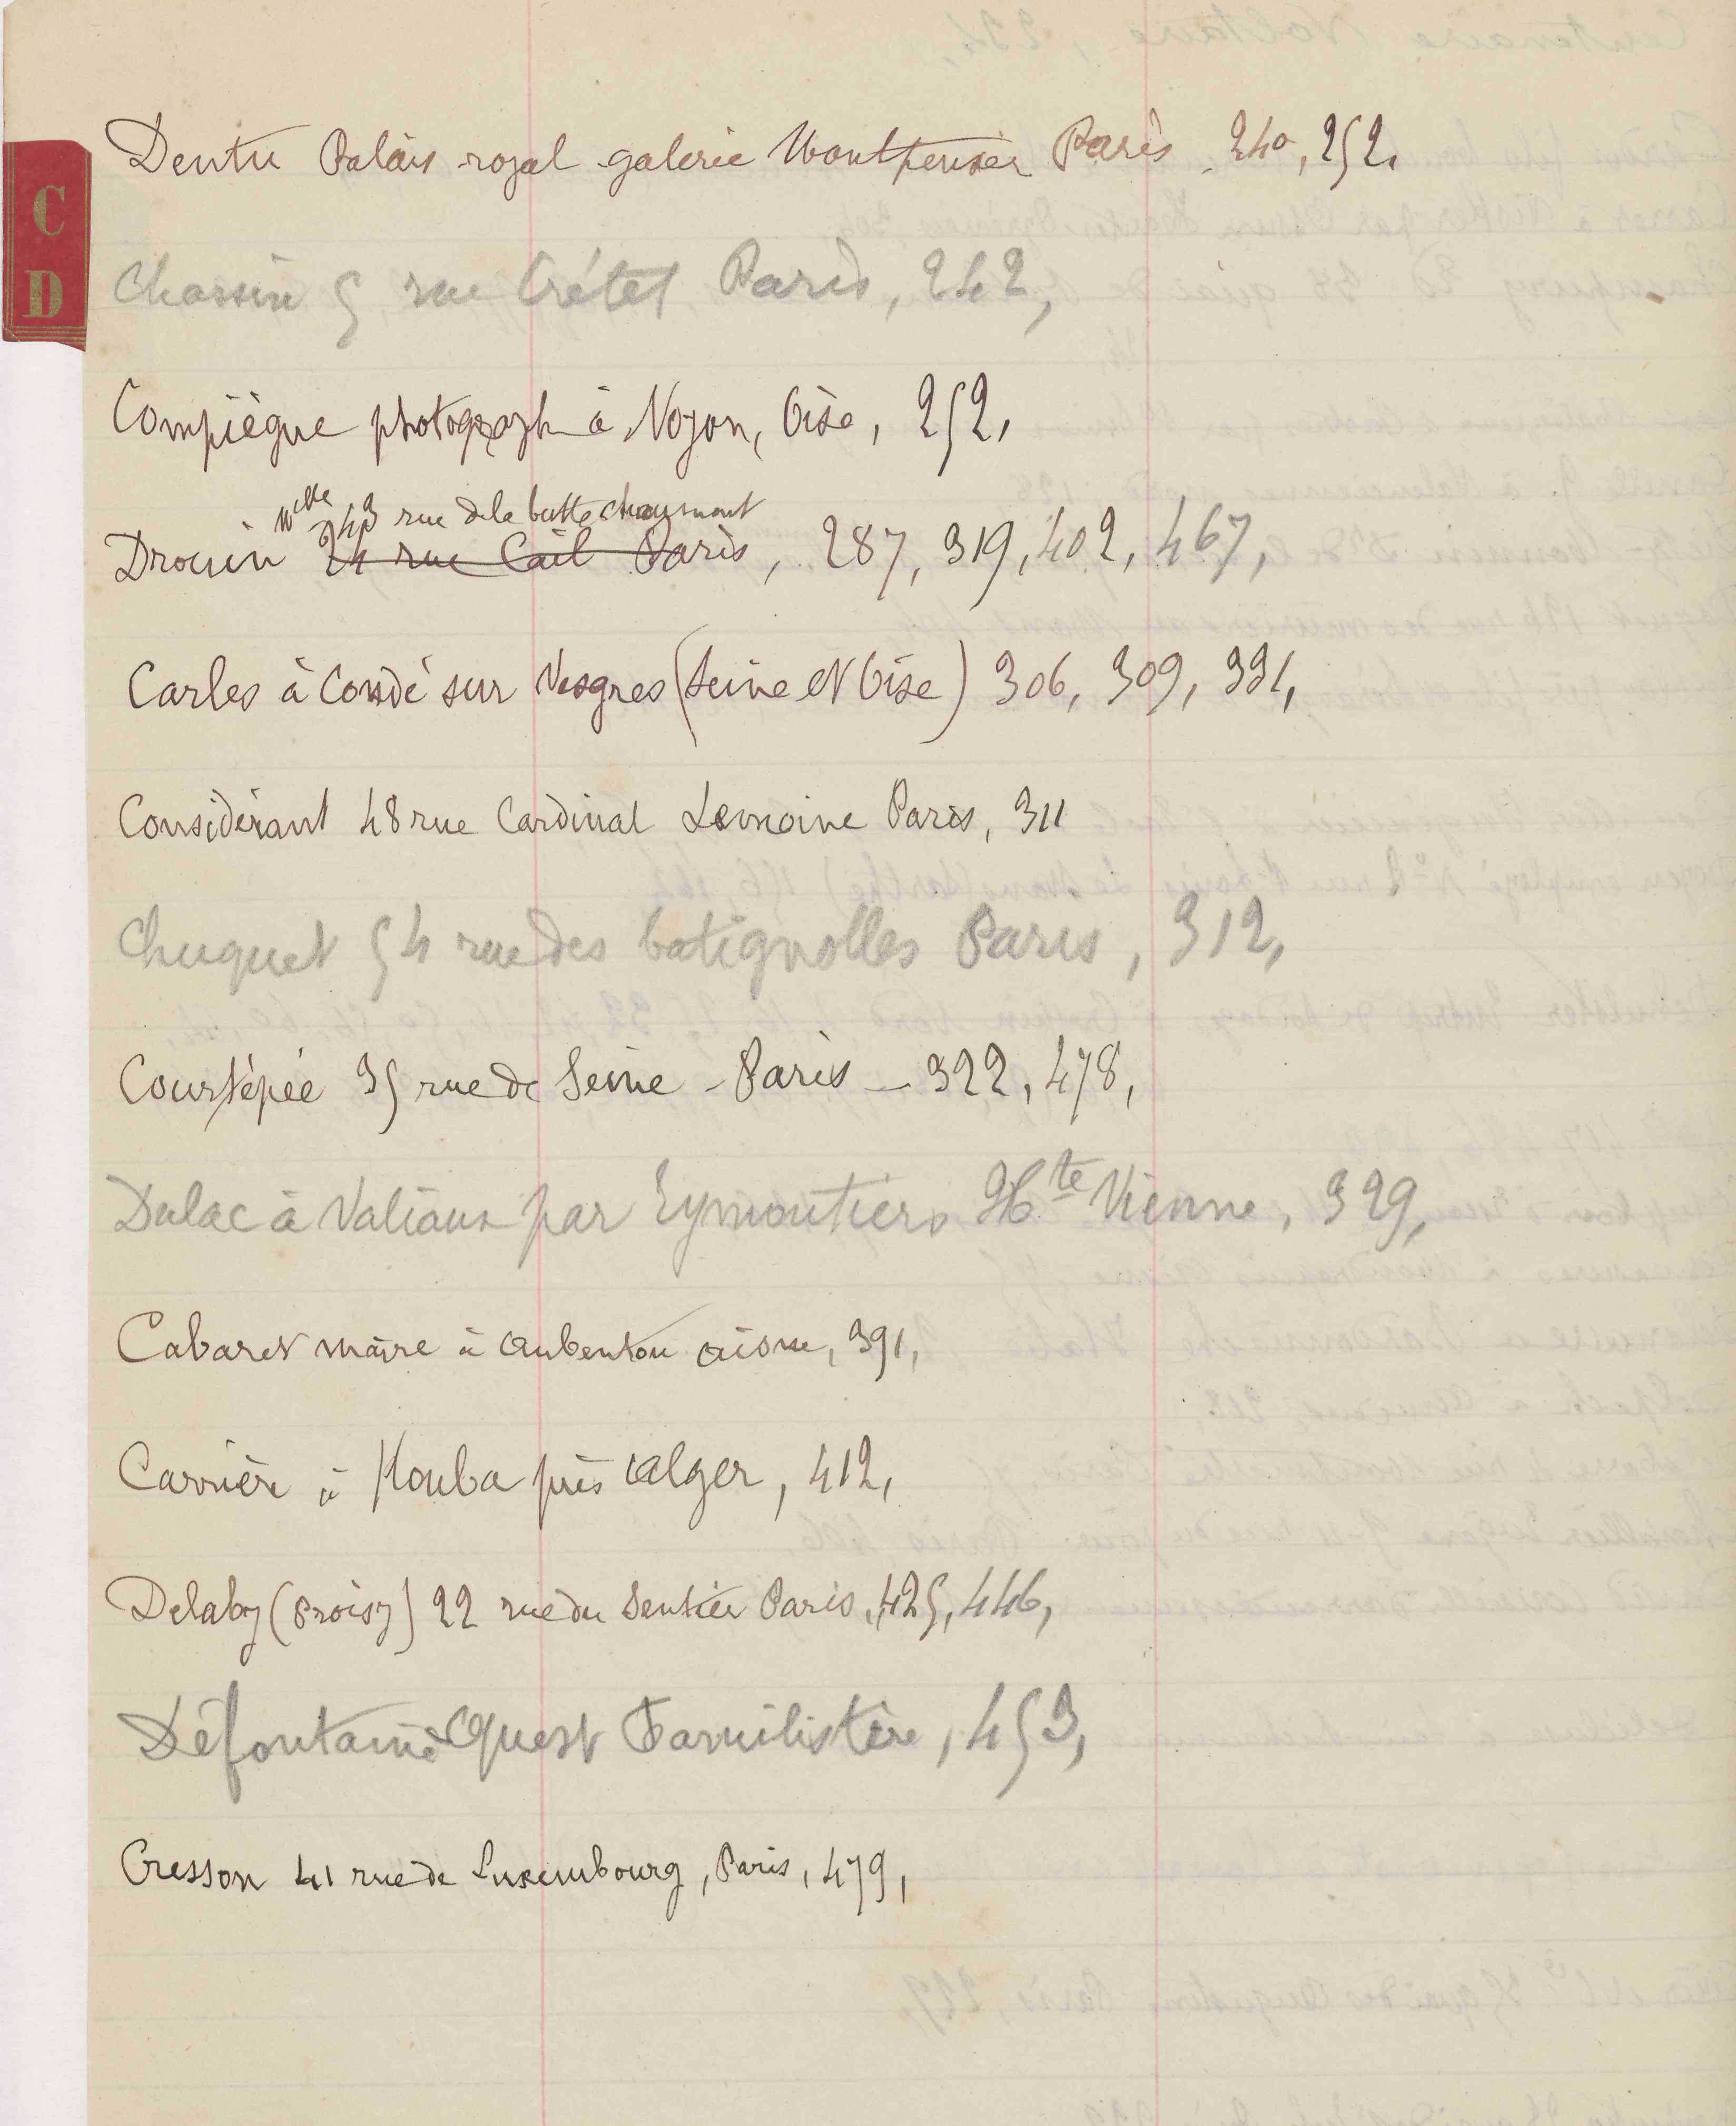 C
D
Dentu Palais royal galerie Montpensier Paris. 240, 252,
Chassin 5 rue Crétet Paris, 242,
Compiègne photograph à Noyon, Oise, 252,
43 rue de la butte chaumont
Drouin 24 rue Cail Paris, 287, 319, 402, 467,
Carles à Condé sur Vesgres (Seine et Oise) 306, 309, 331,
Considérant 48 rue Cardinal Lemoine Paris, 311
Chuquet 54 rue des batignolles Paris, 312,
Courtépée 35 rue de Seine - Paris - 322, 478,
Dulac à par Eymoutiers Hte Vienne, 329,
Cabaret maire à Aubenton aisne, 391,
Carrière à Kouba près Alger, 412,
Delaby (Proisy) 22 rue du Sentier Paris, 425, 446,
Défontaine Quest Familistère, 453,
Cresson 41 rue de Luxembourg, Paris, 479,